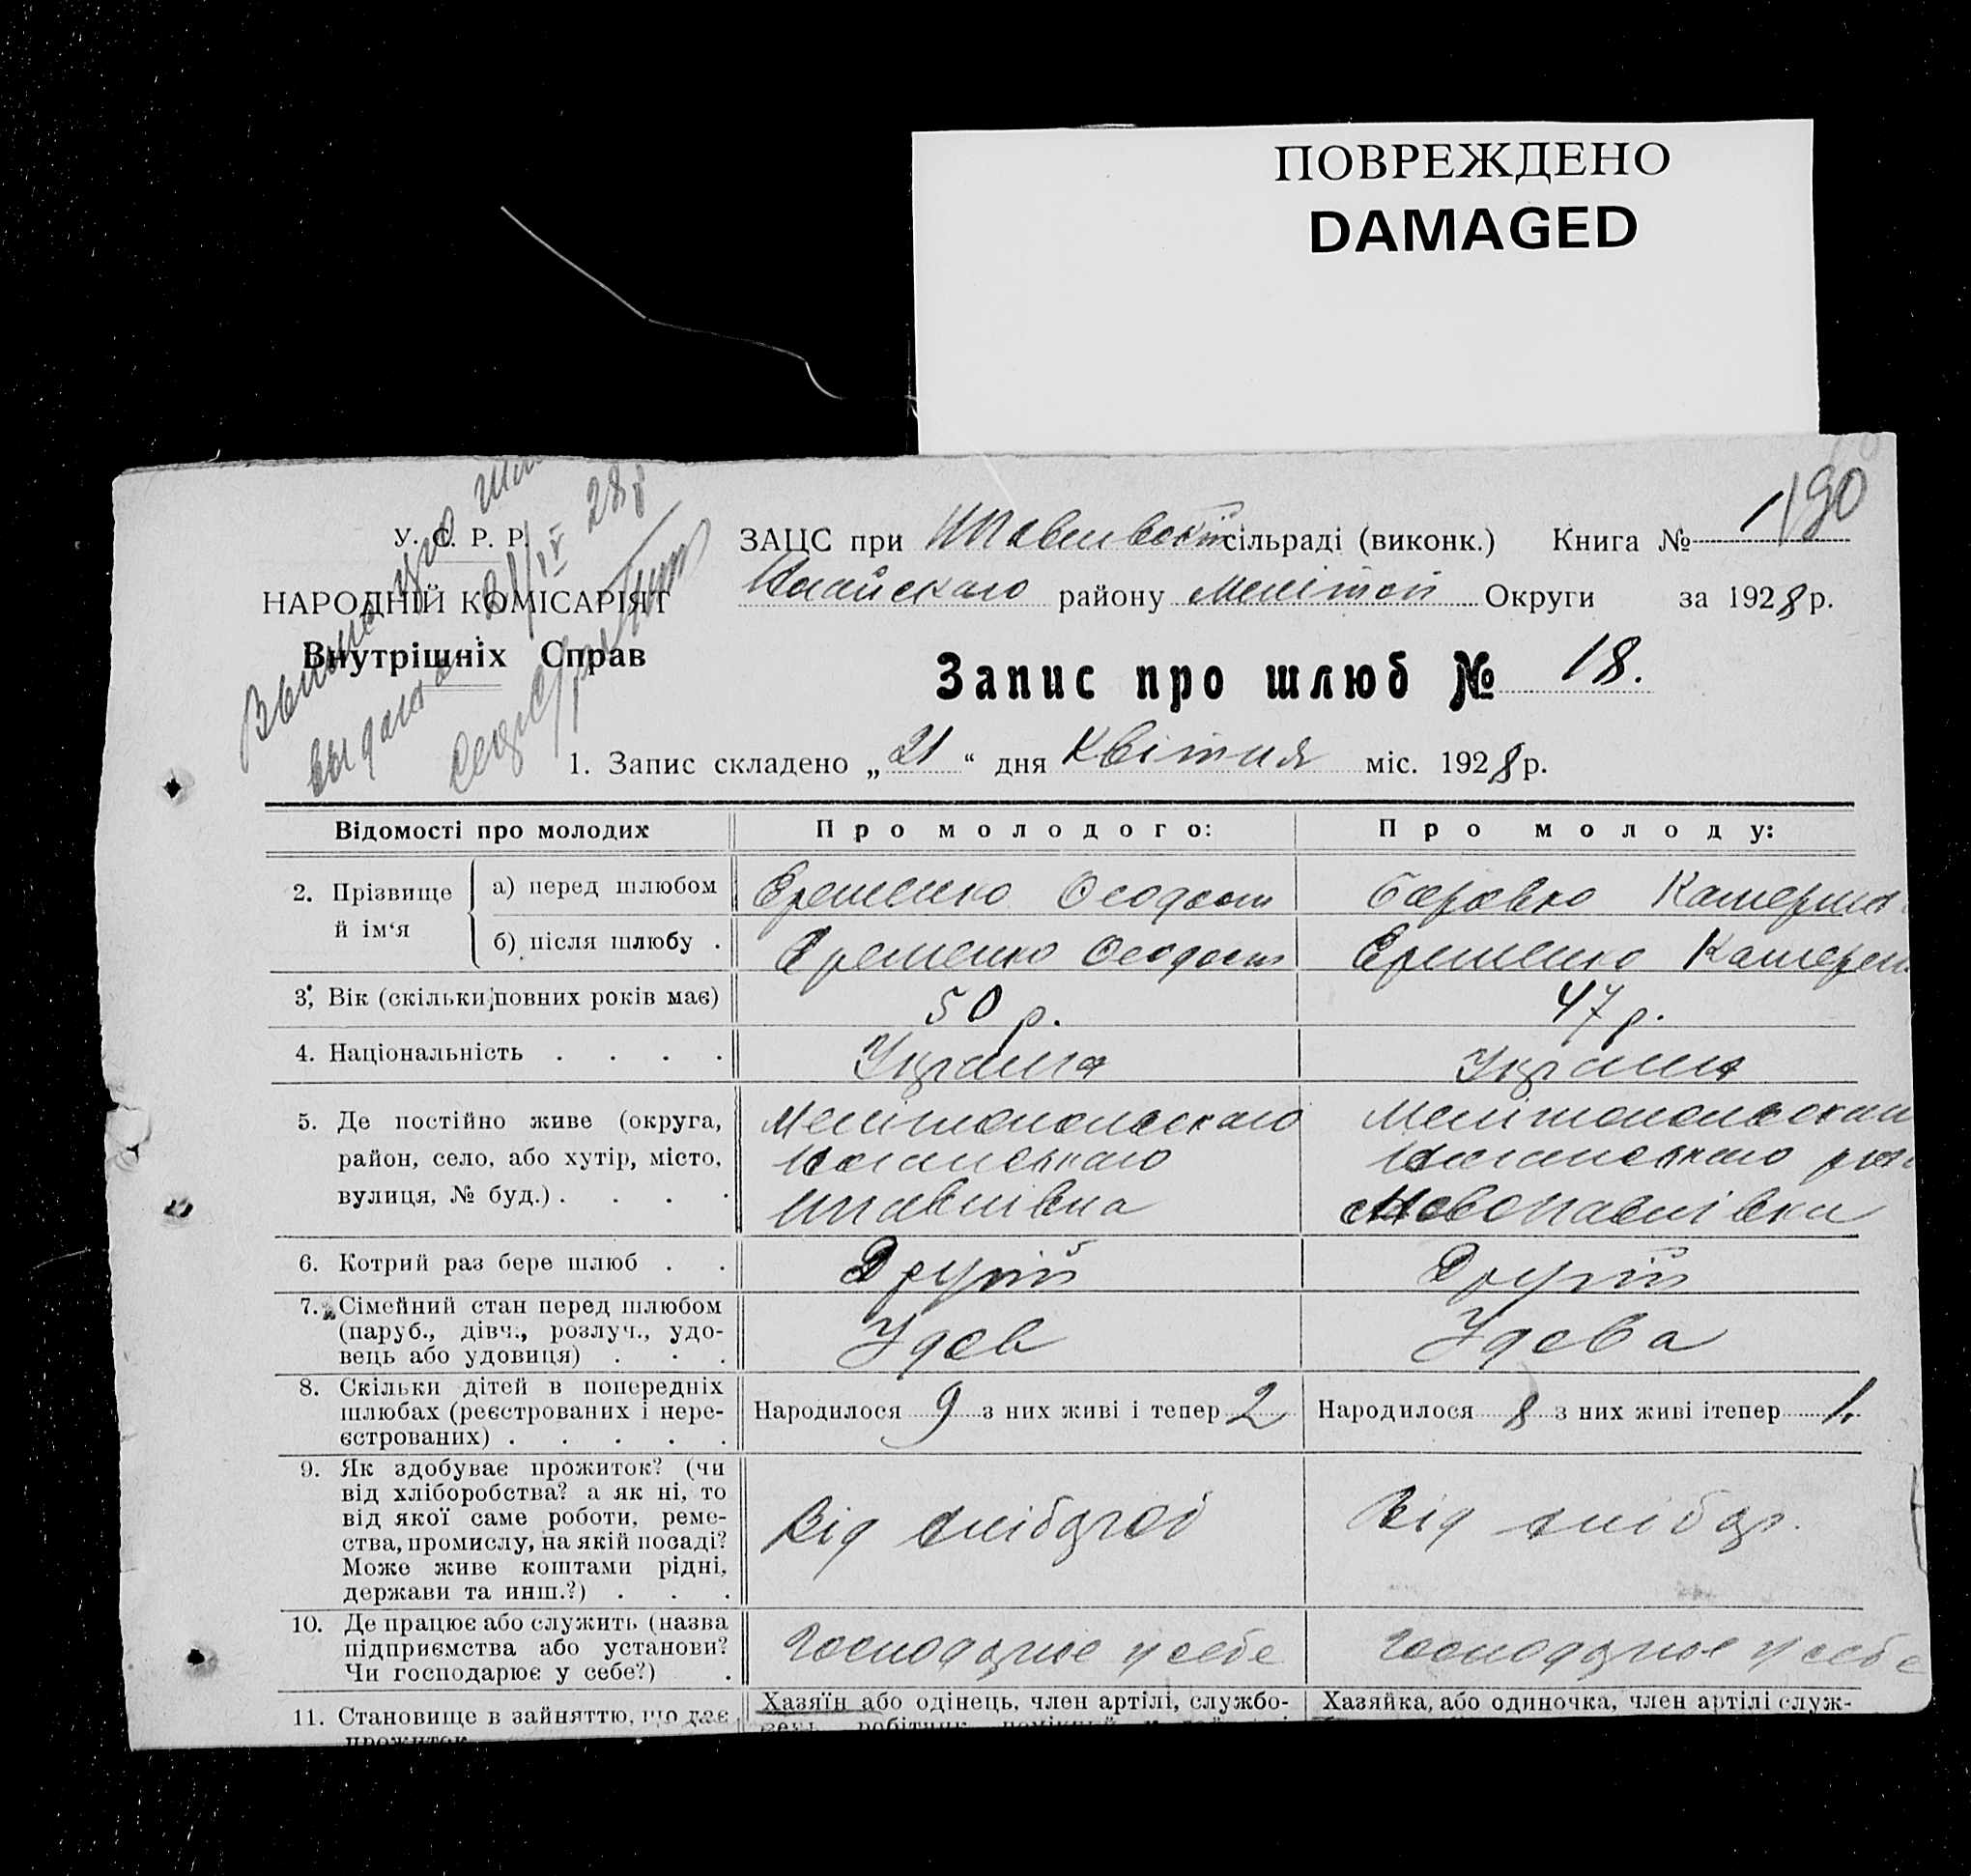 ПОВРЕЖДЕНО
DAMAGED
190
У. С. Р. Р.
НАРОДНІЙ КОМІСАРІЯТ
Внутрішніх Справ
ЗАЦС при сільраді (виконк.) Книга № 1
району Меліноп Округи за 1928 р.
Запис про шлюб № 18.
1. Запис складено „21“ дня Квітня міс. 1928 р.
Відомості про молодих
Про молодого:
Про молоду:
2. Прізвище й ім‘я
а) перед шлюбом
Еременко Феодосій
Катерина
б) після шлюбу .
Еременко Феодосій
Еременко Катерин
3. Вік (скільки повних років має)
50 р.
47 р.
4. Національність . . . .
Украина
Украина
5. Де постійно живе (округа,
район, село, або хутір, місто,
вулиця, № буд.) . . . .
Мелітопольскаго
Мелітопольскаг
Новопавлівки
6. Котрий раз бере шлюб . .
Другій
Другій
7. Сімейний стан перед шлюбом
(паруб., дівч., розлуч., удо-
вець або удовиця) . . .
Удов
Удова
8. Скільки дітей в попередніх
шлюбах (реєстрованих і нере-
єстрованих) . . . . .
Народилося 9 з них живі і тепер 2
Народилося 8 з них живі ітепер 1.
9. Як здобуває прожиток? (чи
від хліборобства? а як ні, то
від якої саме роботи, реме-
ства, промислу, на якій посаді?
Може живе коштами рідні,
держави та инш.?) . . .
Від хлібороб
Від хлібор.
10. Де працює або служить (назва
підприємства або установи?
Чи господарює у себе?) .
Господарює у себе
Господарює у себе
11. Становище в зайняттю, що дає
прожиток
Хазяїн або одінець, член артілі, службо-
Хазяйка, або одиночка, член артілі служ-